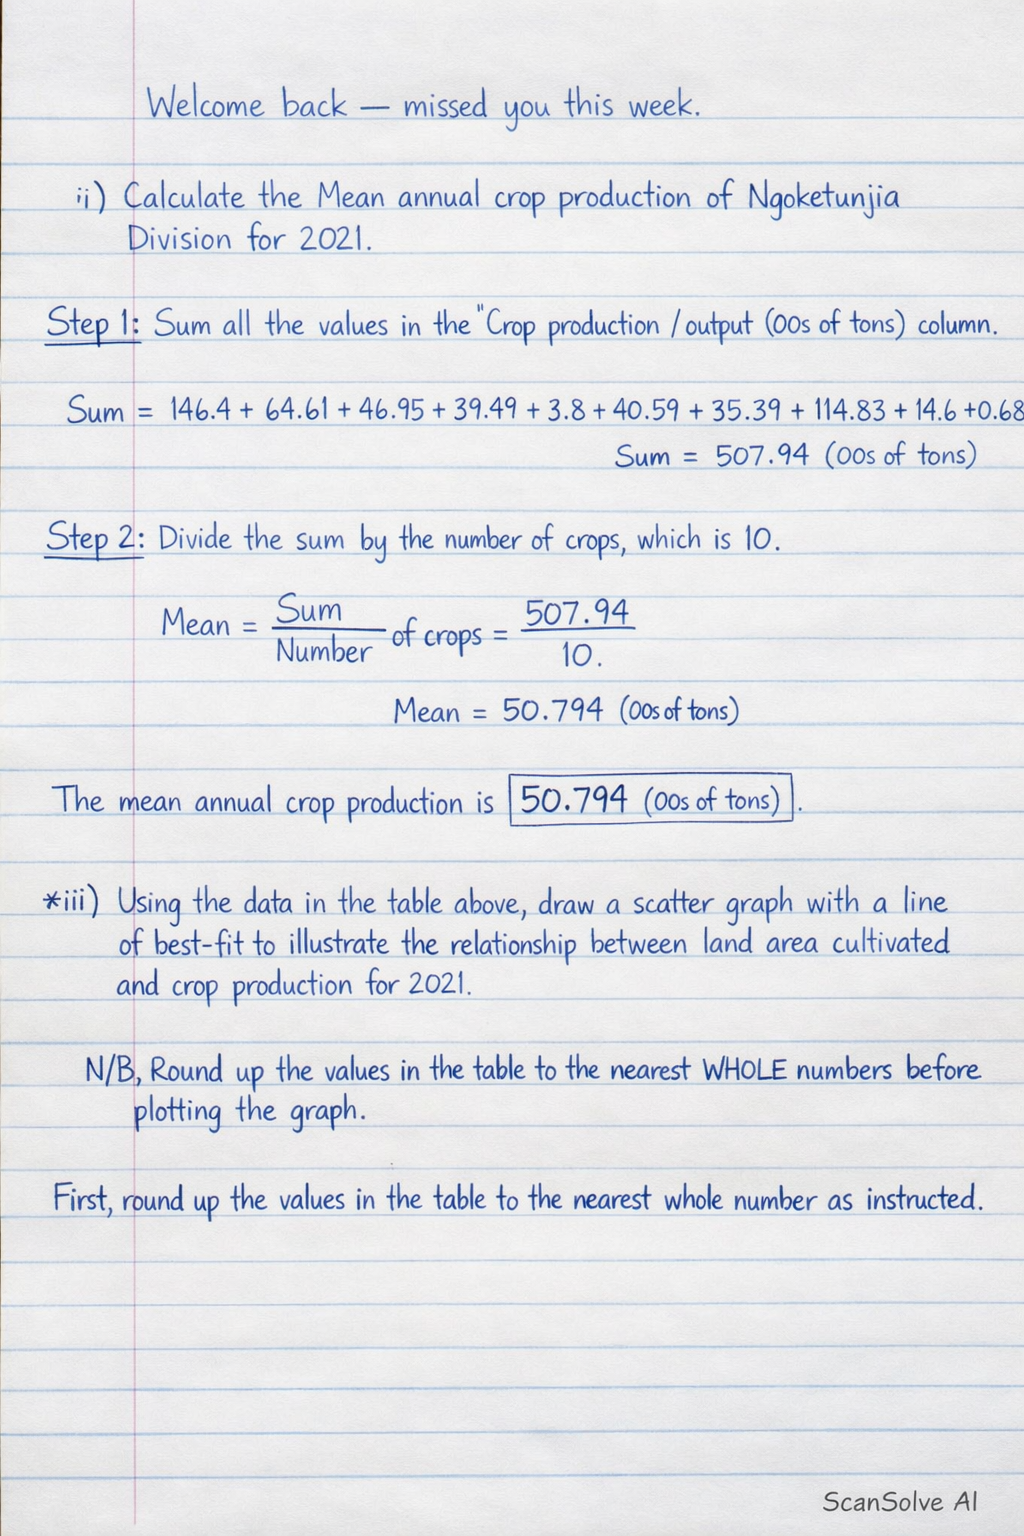 Welcome back — missed you this week.
ii) Calculate the Mean annual crop production of Ngoketunjia
Division for 2021.
Step 1: Sum all the values in the "Crop production / output (00s of tons) column.
Sum = 146.4 + 64.61 + 46.95 + 39.49 + 3.8 + 40.59 + 35.39 + 114.83 + 14.6 + 0.68
Sum = 507.94 (00s of tons)
Step 2: Divide the sum by the number of crops, which is 10.
Mean = Sum / Number of crops = 507.94 / 10.
Mean = 50.794 (00s of tons)
The mean annual crop production is 50.794 (00s of tons).
*iii) Using the data in the table above, draw a scatter graph with a line
of best-fit to illustrate the relationship between land area cultivated
and crop production for 2021.
N/B, Round up the values in the table to the nearest WHOLE numbers before
plotting the graph.
First, round up the values in the table to the nearest whole number as instructed.
ScanSolve AI